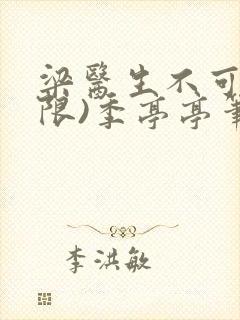 梁醫生不可
限)季亭亭筆
李洪敏